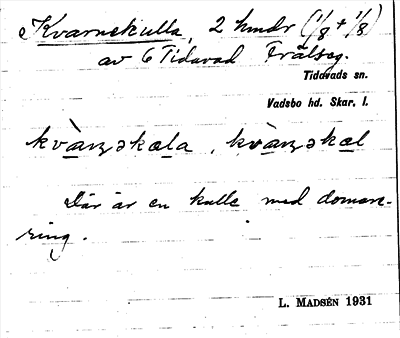 Kvarnekulla, 2 hmdr (1/8 + 1/8)
av 6 Tidavad Frälseg.
Tidavads sn.
Vadsbo hd. Skar. l.
kvà̱ɳəkæla, kvà̱ɳəkæl
Där är en kulle med domare-
ring.
L. MADSÉN 1931